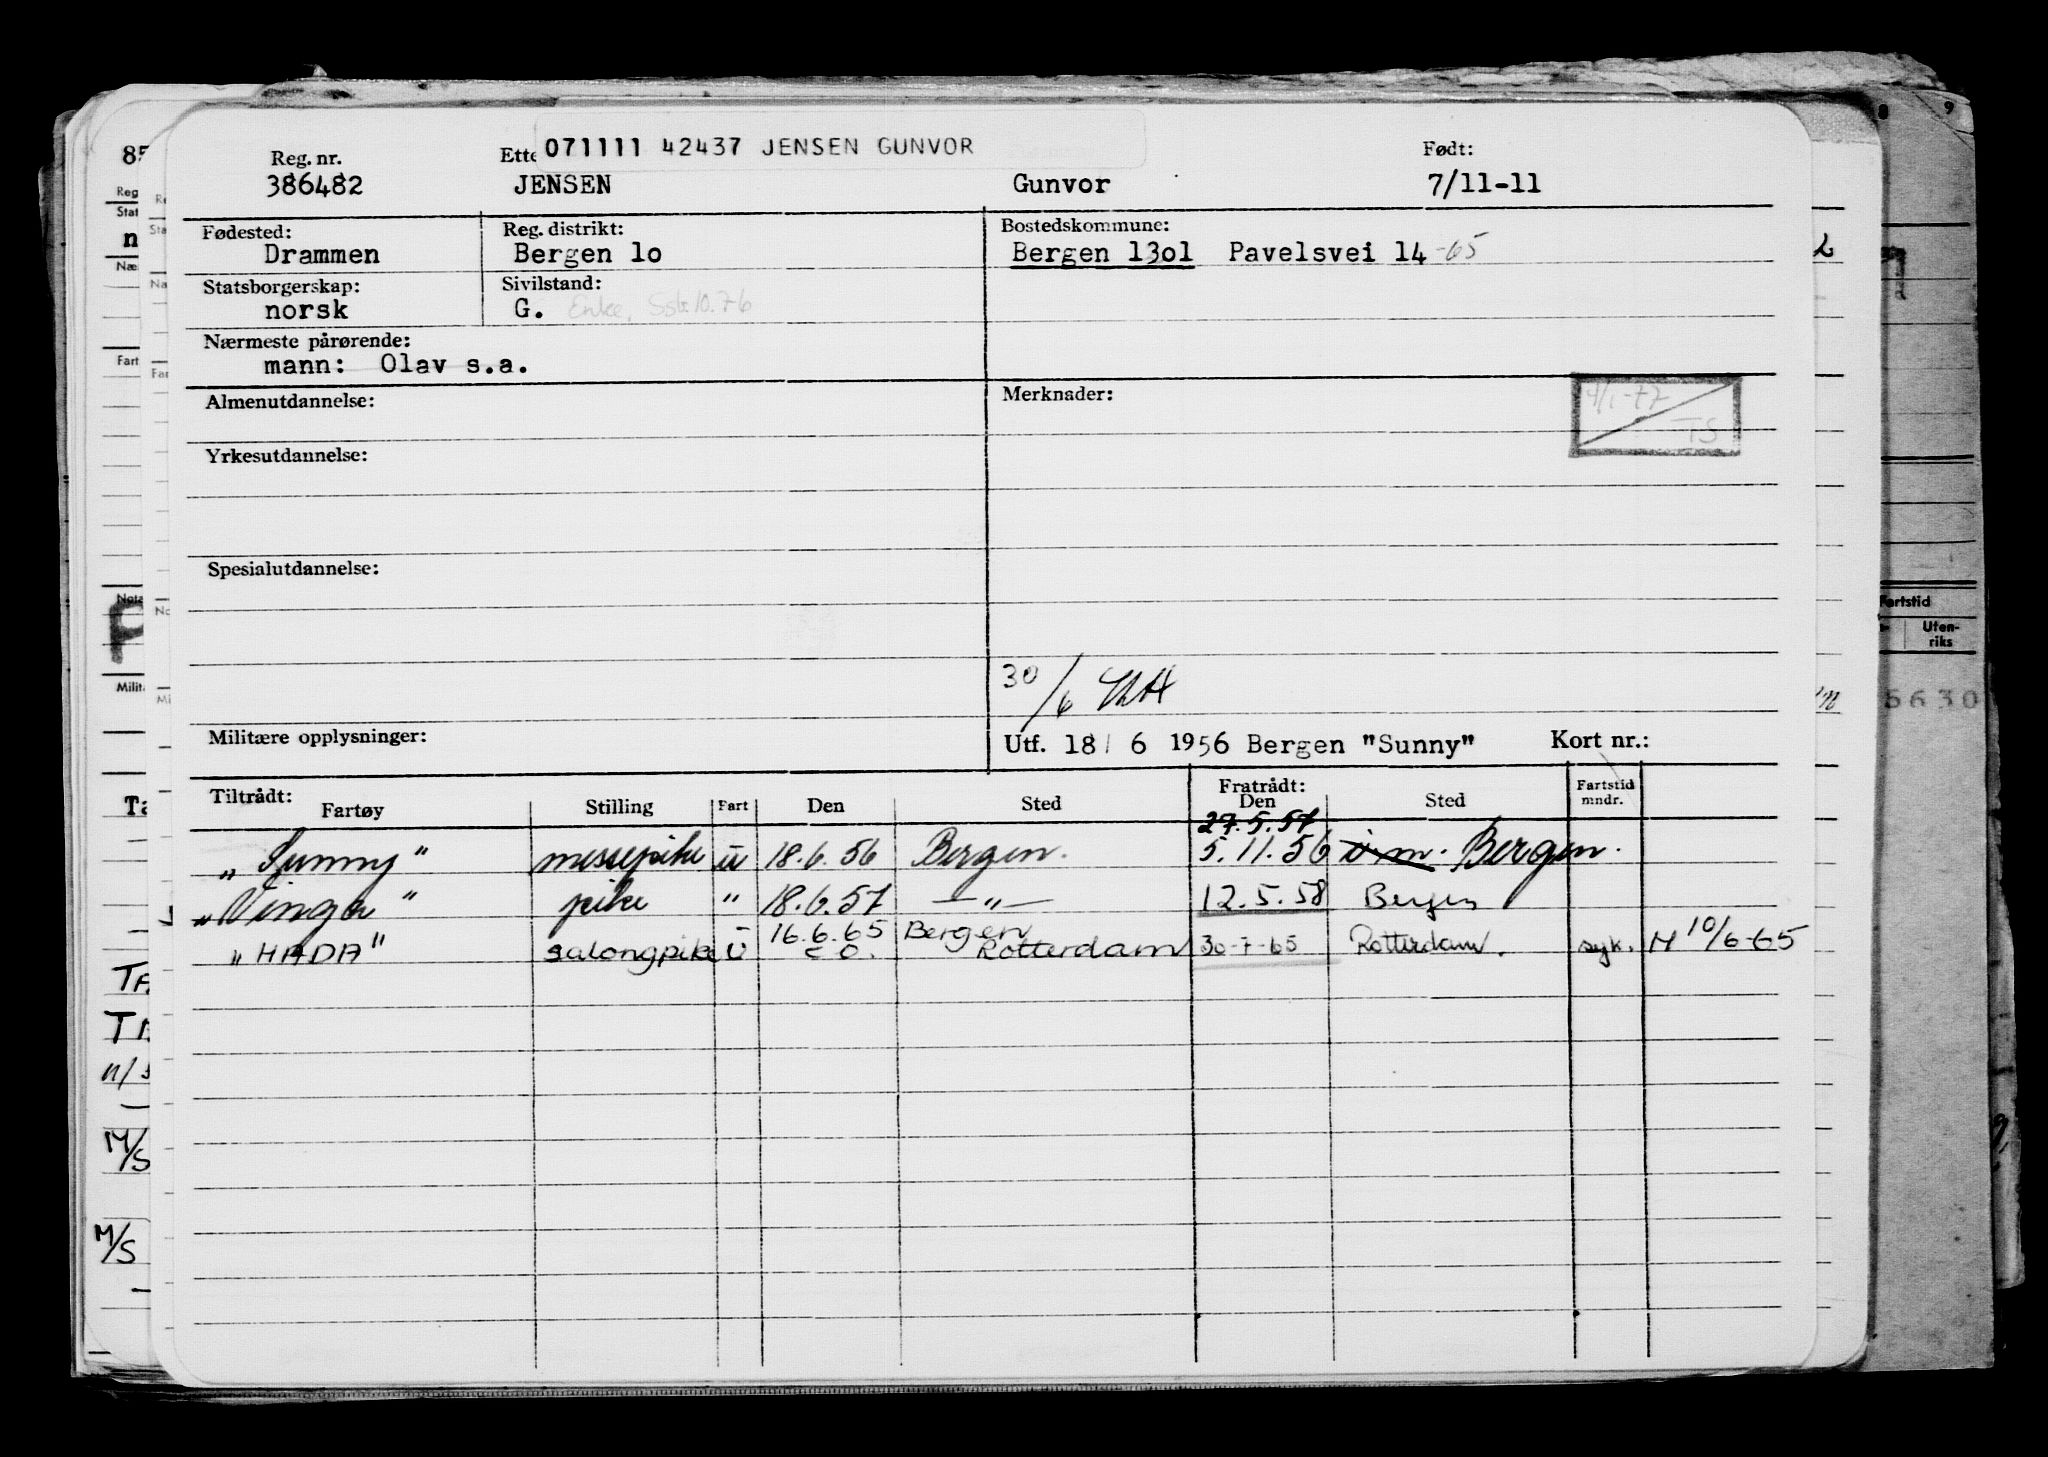 071111 42437 JENSEN GUNVOR
Reg. nr. Ette Født:
386482 JENSEN Gunvor 7/11-11
Fødested: Reg. distrikt: Bostedskommune:
Drammen Bergen lo Bergen l3ol Pavelsvei l4 -65
Statsborgerskap: Sivilstand:
norsk G. Enke, 10.76
Nærmeste pårørende:
mann: Olav s.a.
Almenutdannelse: Merknader:
4/1-77
TS
Yrkesutdannelse:
Spesialutdannelse:
30/6
Militære opplysninger: Utf. 18/ 6 1956 Bergen "Sunny" Kort nr.:
Tiltrådt: Fratrådt: Fartstid
Fartøy Stilling Fart Den Sted Den Sted mndr.
27.5.57
"Sunny" messepike u 18.6.56 Bergen. 5.11.56 Bergen.
"Vinga" pike " 18.6.57 —"— 12.5.58 Bergen
16.6.65 Bergen
"HADA" salongpike u Rotterdam 30-7-65 Rotterdam. syk. M 10/6-65
85
Reg
Stat
n
Næ
Fart
Nota
Milit
TM
n/s
M/S
M/S
8 9
Fartstid
Uten-
riks
5630